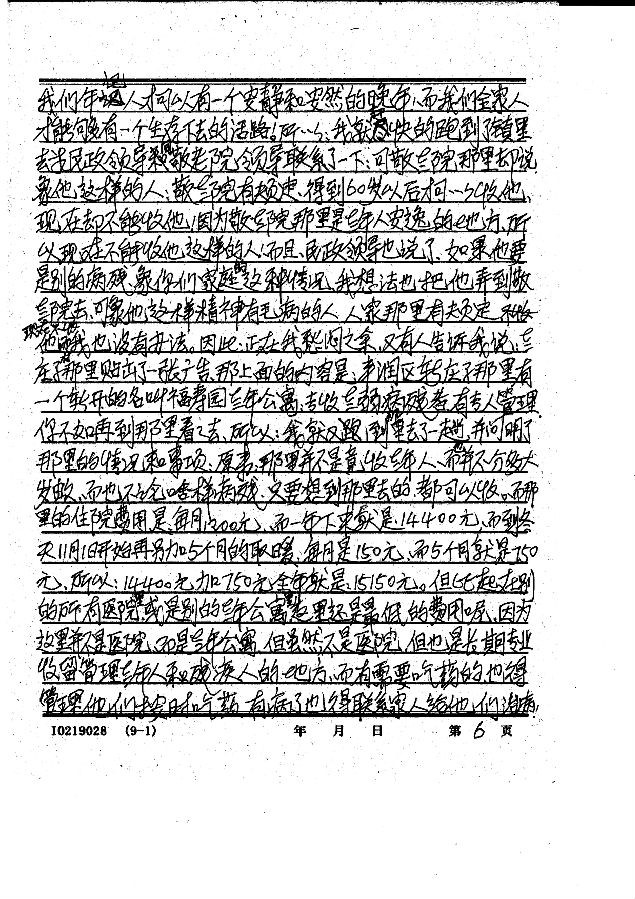 我们年迈人才可以有一个安静和安然的晚年，而我们全家人
才能够有一个生存下去的活路！所以：我急忙的跑到了镇里
去找民政领导和敬老院领导联系了一下；可敬老院那里却说
象他这样的人；敬老院有规定，得到60岁以后才可以收他，
现在却不能收他，因为敬老院那里是老年人安逸的地方，所
以现在不能收他这样的人；而且，民政领导也说了，如果他要
是别的病残，象你们家庭这种情况，我想法也把他弄到敬
老院去，可象他这样精神有毛病的人，人家那里有规定，
他我也没有办法。因此，正在我愁闷之余，又有人告诉我说；
那里贴出了一张广告，那上面的内容是，丰润区那里有
一个新开的名叫福寿园老年公寓，专收老弱病残者，有专人管理，
你不如再到那里看之去，所以：我就又跑到里去了一趟，并问明了
那里的情况和事项，原来，那里并不是竟收老年人，而并不分多大
岁数，而也不论啥样病残，只要想到那里去的，都可以收。而那
里的住院费用是每月1200元，而一年下来就是14400元，而到冬
天11月1日开始再另加5个月的取暖，每月是150元，而5个月就是750
元，所以：14400元加750元全年就是15150元。但比起在别
的所有医院或是别的老年公寓这里还是最低的费用呢，因为
这里并不是医院，而是老年公寓，但虽然不是医院，但也是长期专业
收留管理老年人和残疾人的地方，而有需要吃药的也得
管理他们按时吃药，有病了也得联系家人给他们治病；
I0219028 (9-1) 年 月 日 第 6 页